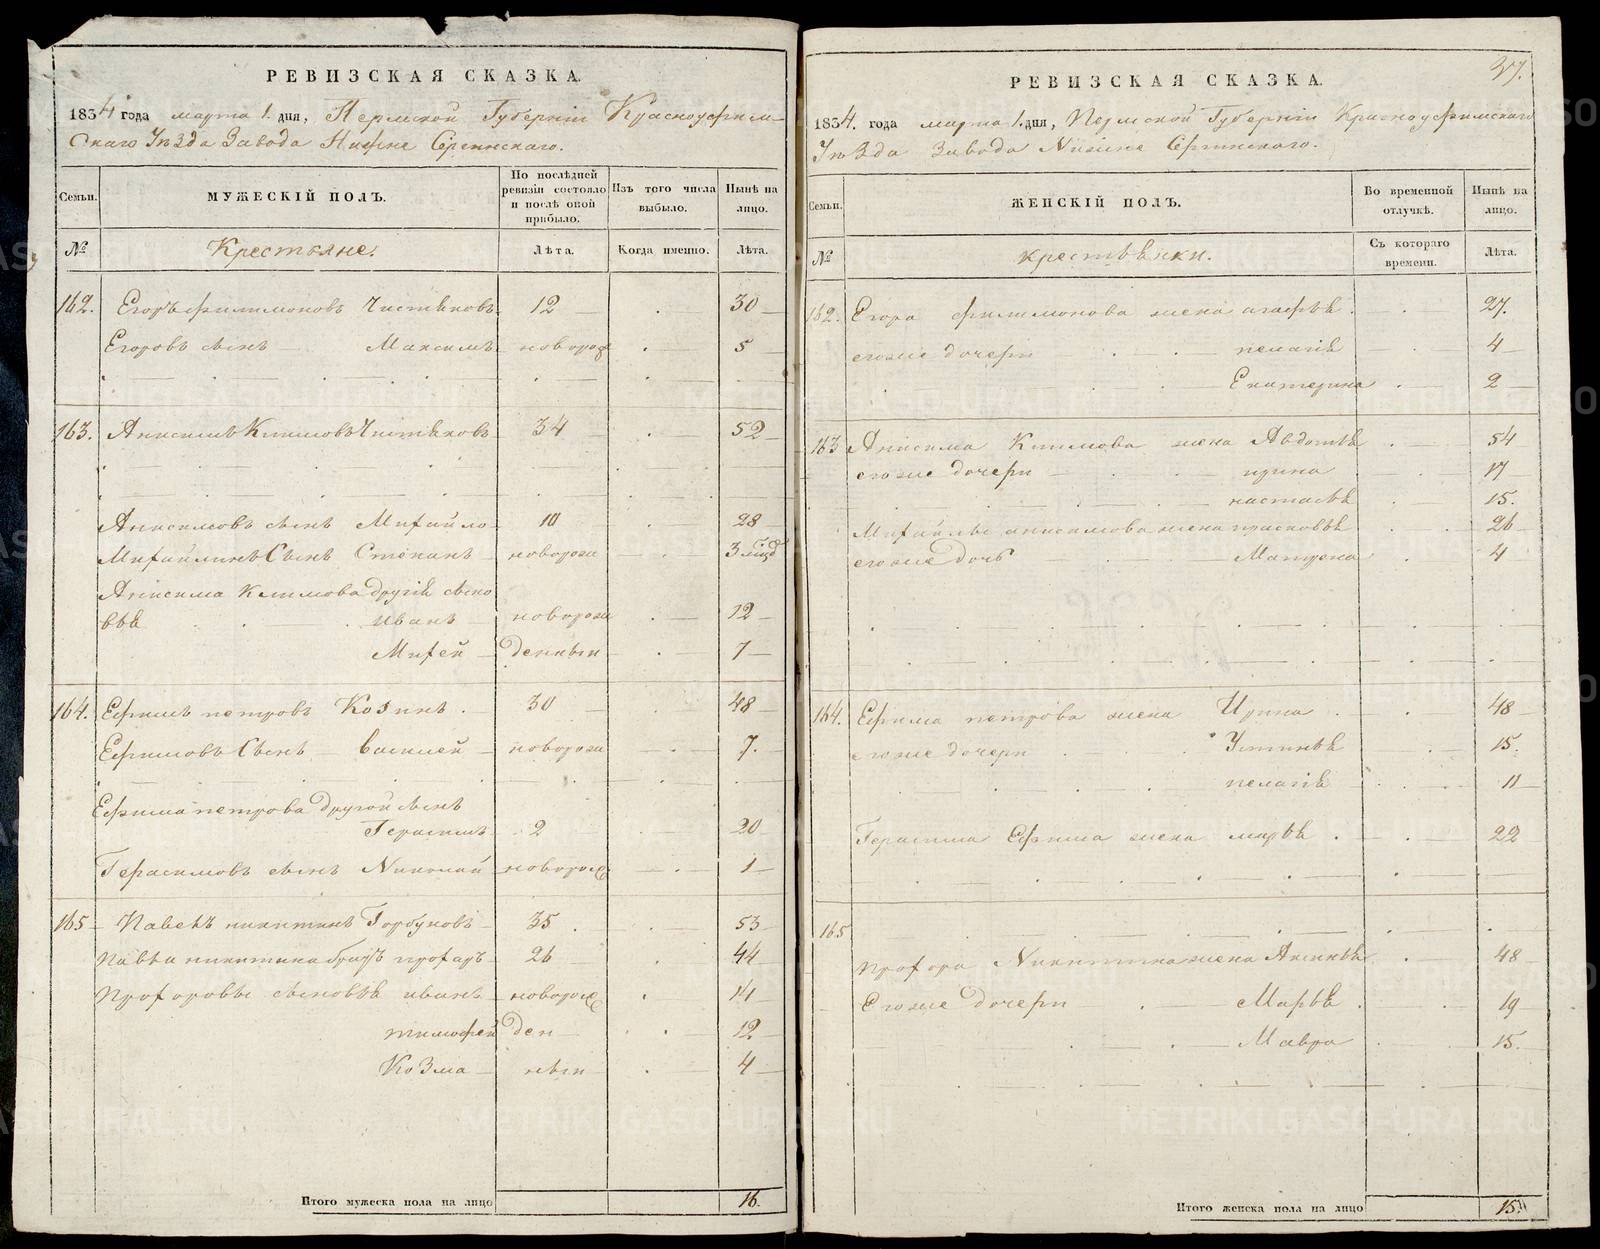 РЕВИЗСКАЯ СКАЗКА.
1834 года марта 1. дня, Пермской Губерніи Красноуфим-
скаго Уѣзда Завода Нижне Сергинскаго.
Семьи.
МУЖЕСКІЙ ПОЛЪ.
По послѣдней ревизіи состояло и послѣ оной прибыло.
Изъ того числа выбыло.
Нынѣ на лицо.
№
Крестьяне.
Лѣта.
Когда именно.
Лѣта.
162. Егоръ филимоновъ Чистяковъ 12 30
Егоровъ сынъ Максимъ новорож 5
163. Анисимъ Климовъ Чистяковъ 34 52
Анисимовъ сынъ Михайло 10 28
Михайлинъ Сынъ Степанъ новорож 3 мѣс
Анисима Климова другіе сыно
вья Иванъ новорож 12
Михей денныи 7
164. Ефимъ петровъ Козинъ 30 48
Ефимовъ Сынъ василей новорож 7.
Ефима петрова другой сынъ
Герасимъ 2 20
Герасимовъ сынъ Николай новорож 1
165 Павелъ никитинъ Горбуновъ 35 53
Павла никитина братъ прохоръ 26 44
Прохоровы сыновья иванъ новорож 14
тимофей ден 12
Козма ныи 4
Итого мужеска пола на лицо 16.
37.
РЕВИЗСКАЯ СКАЗКА.
1834. года марта 1. дня, Пермской Губерніи Красноуфимскаго
Уѣзда Завода Нижне Сергинскаго.
Семьи.
ЖЕНСКІЙ ПОЛЪ.
Во временной отлучкѣ.
Нынѣ на лицо.
№
крестьянки.
Съ котораго времени.
Лѣта.
162. Егора филимонова жена агафья 27.
егоже дочери пелагія 4
Екатерина 2
163 Анисима Климова жена Авдотья 54
егоже дочери ирина 17
настасья 15.
Михайлы анисимова жена прасковья 26
егоже дочь Матрена 4
164. Ефима петрова жена Ирина 48
егоже дочери Устинья 15.
пелагія 11
Герасима Ефима жена марья 22
165
Прохора Никитина жена Аксинья 48
Егоже дочери Марья 19
Мавра 15.
Итого женска пола на лицо 15.
METRIKI.GASO-URAL.RU